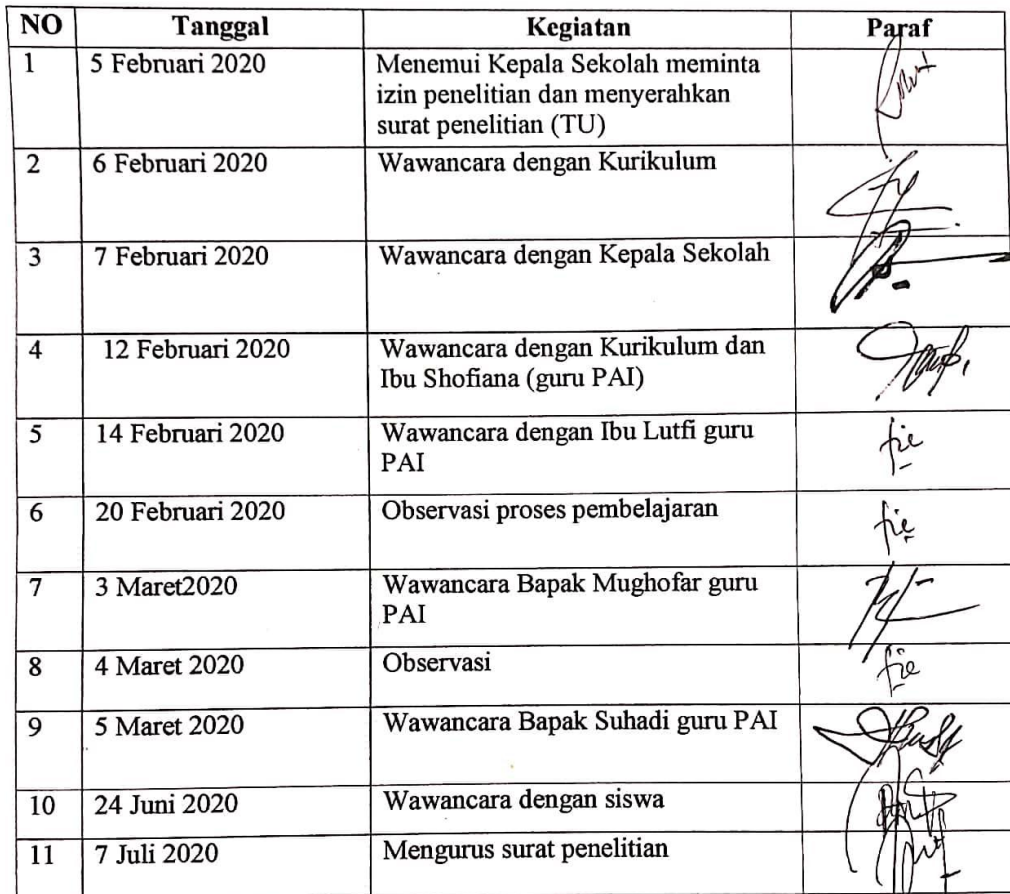 NO Tanggal Kegiatan Paraf
1 5 Februari 2020 Menemui Kepala Sekolah meminta
izin penelitian dan menyerahkan
surat penelitian (TU)
2 6 Februari 2020 Wawancara dengan Kurikulum
3 7 Februari 2020 Wawancara dengan Kepala Sekolah
4 12 Februari 2020 Wawancara dengan Kurikulum dan
Ibu Shofiana (guru PAI)
5 14 Februari 2020 Wawancara dengan Ibu Lutfi guru
PAI
6 20 Februari 2020 Observasi proses pembelajaran
7 3 Maret2020 Wawancara Bapak Mughofar guru
PAI
8 4 Maret 2020 Observasi
9 5 Maret 2020 Wawancara Bapak Suhadi guru PAI
10 24 Juni 2020 Wawancara dengan siswa
11 7 Juli 2020 Mengurus surat penelitian